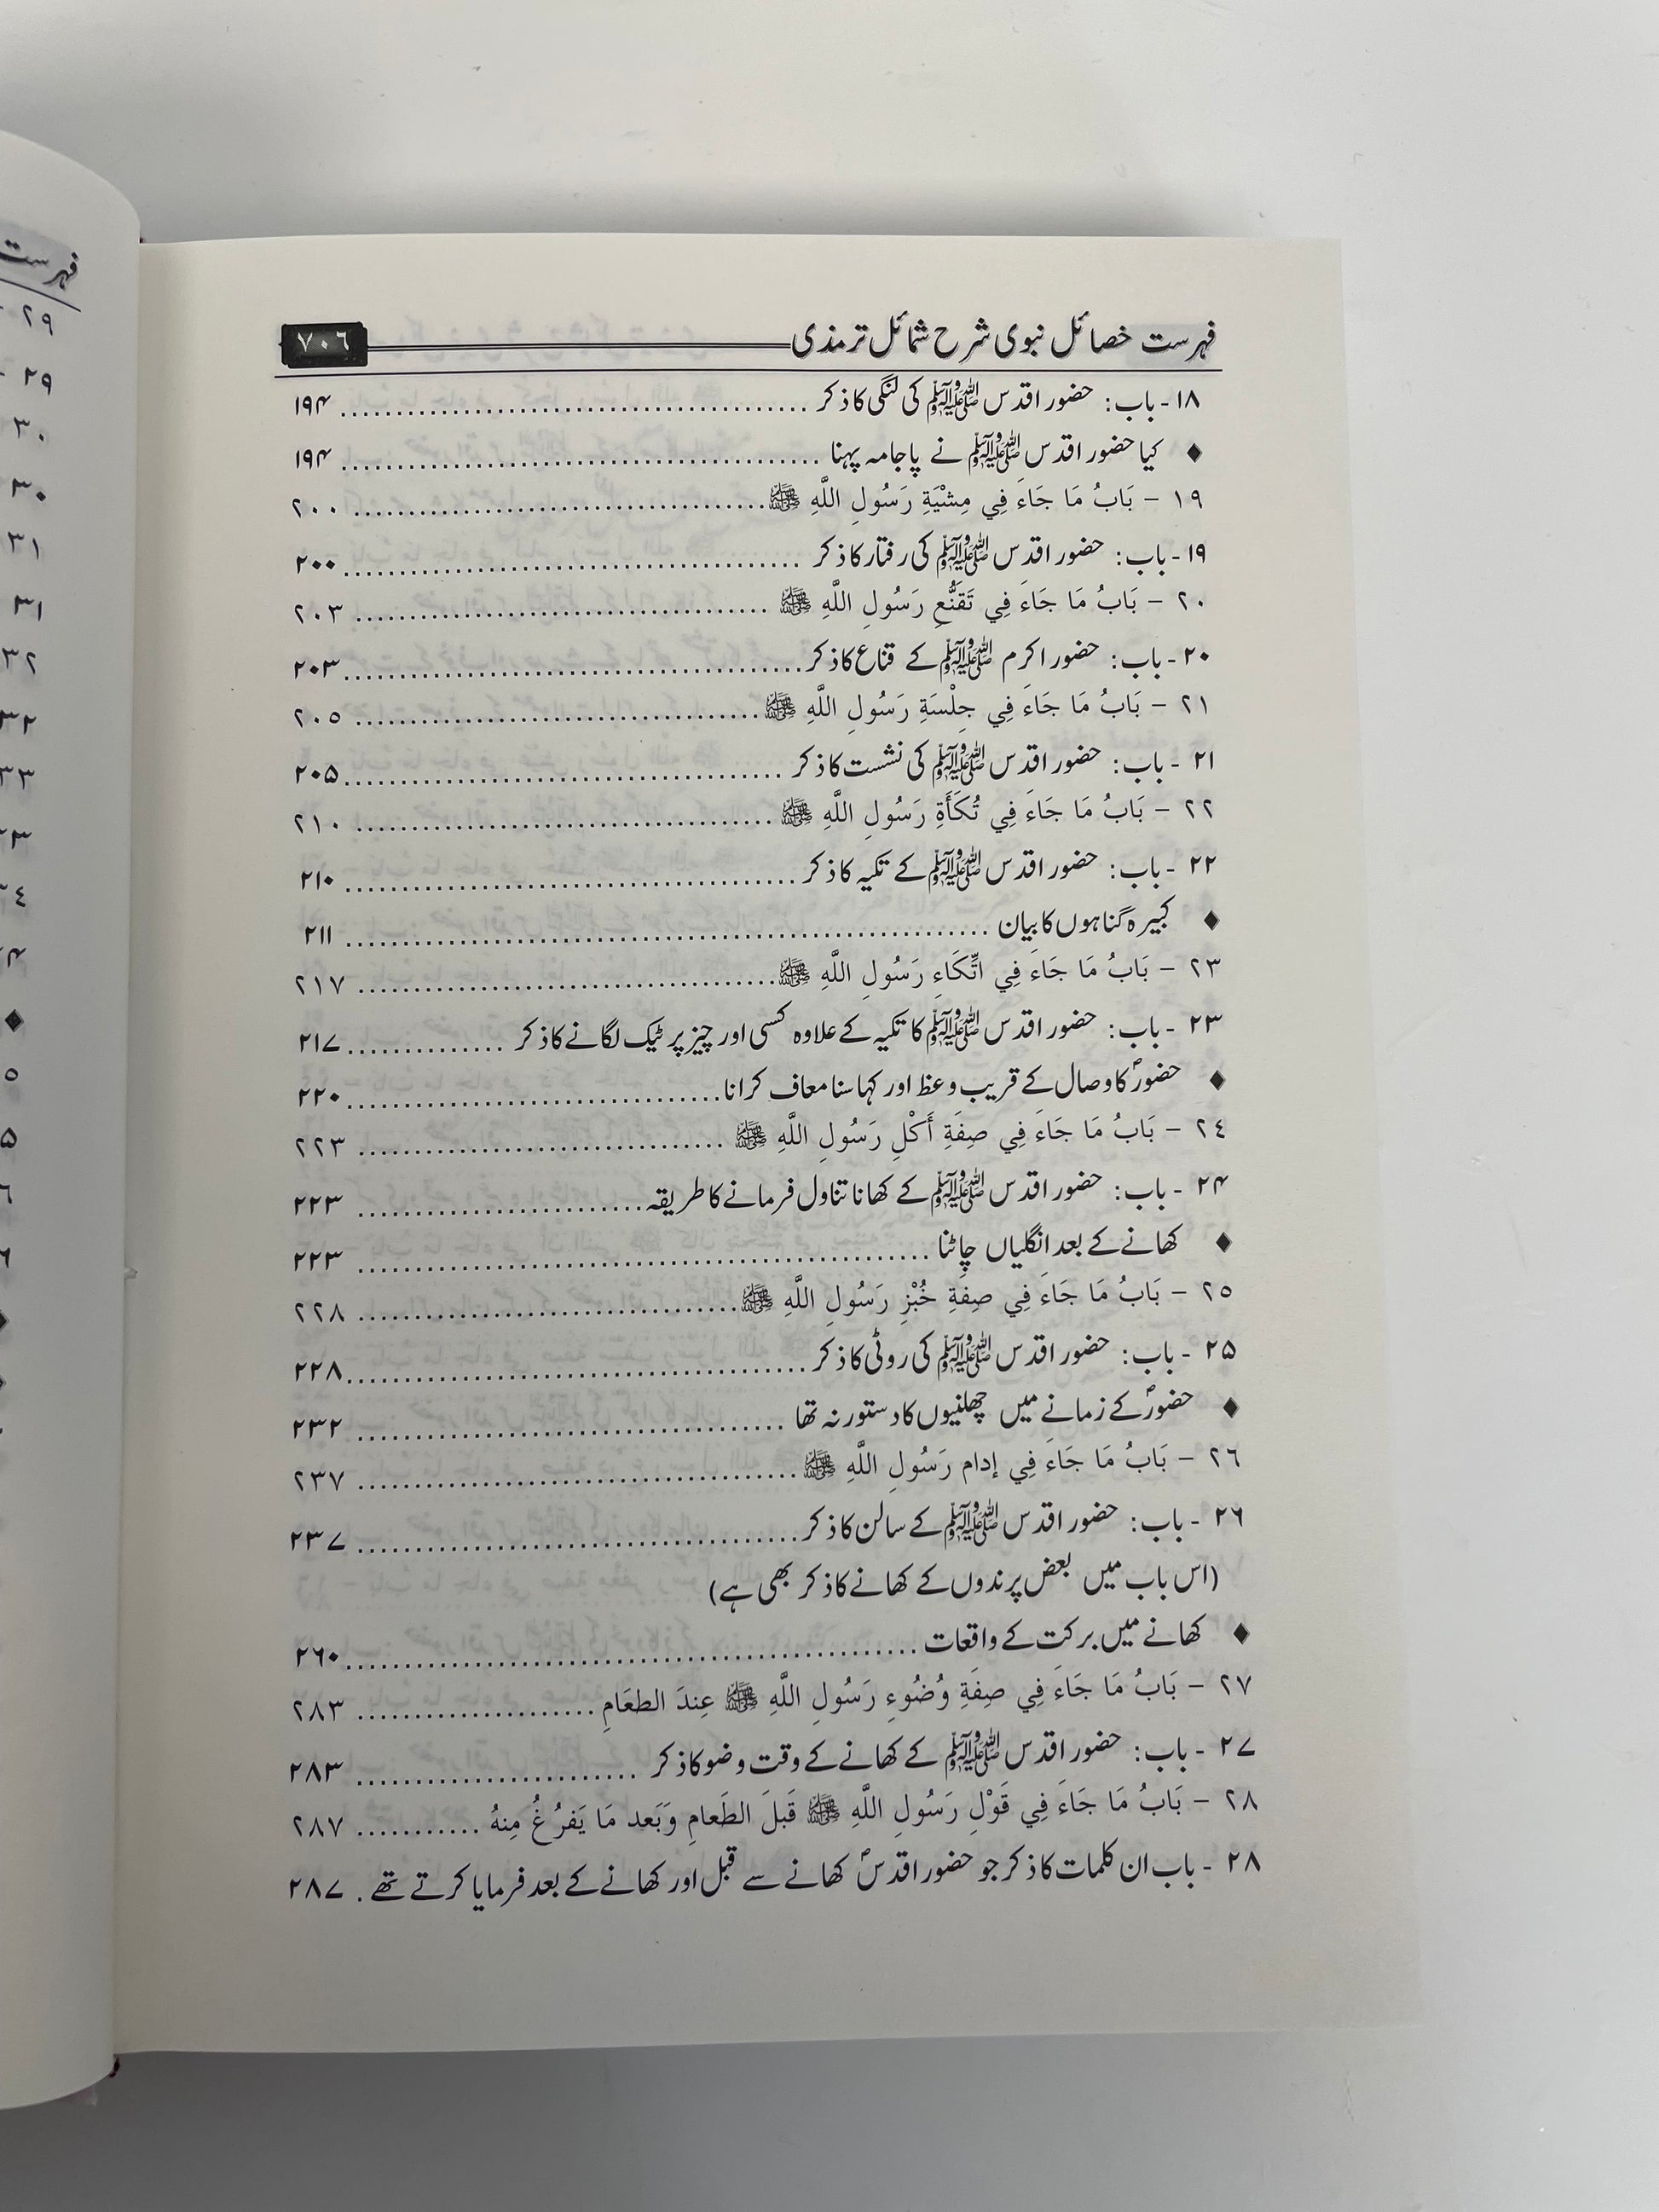 فہرست خصائل نبوی شرح شمائل ترمذی ٧٠٦
۱۸- باب: حضور اقدس ﷺ کی لنگی کا ذکر ۱۹۴
♦ کیا حضور اقدس ﷺ نے پاجامہ پہنا ۱۹۴
١٩ – بَابُ مَا جَاءَ فِي مِشْيَةِ رَسُولِ اللَّهِ ﷺ ٢٠٠
۱۹- باب: حضور اقدس ﷺ کی رفتار کا ذکر ۲۰۰
٢٠ – بَابُ مَا جَاءَ فِي تَقَنُّعِ رَسُولِ اللَّهِ ﷺ ٢٠٣
۲۰- باب: حضور اکرم ﷺ کے قناع کا ذکر ۲۰۳
٢١ – بَابُ مَا جَاءَ فِي جِلْسَةِ رَسُولِ اللَّهِ ﷺ ٢٠٥
۲۱- باب: حضور اقدس ﷺ کی نشست کا ذکر ۲۰۵
٢٢ – بَابُ مَا جَاءَ فِي تُكَأَةِ رَسُولِ اللَّهِ ﷺ ٢١٠
۲۲- باب: حضور اقدس ﷺ کے تکیہ کا ذکر ۲۱۰
♦ کبیرہ گناہوں کا بیان ۲۱۱
٢٣ – بَابُ مَا جَاءَ فِي اتِّكَاءِ رَسُولِ اللَّهِ ﷺ ٢١٧
۲۳- باب: حضور اقدس ﷺ کا تکیہ کے علاوہ کسی اور چیز پر ٹیک لگانے کا ذکر ۲۱۷
♦ حضورؐ کا وصال کے قریب وعظ اور کہا سنا معاف کرانا ۲۲۰
٢٤ – بَابُ مَا جَاءَ فِي صِفَةِ أَكْلِ رَسُولِ اللَّهِ ﷺ ٢٢٣
۲۴- باب: حضور اقدس ﷺ کے کھانا تناول فرمانے کا طریقہ ۲۲۳
♦ کھانے کے بعد انگلیاں چاٹنا ۲۲۳
٢٥ – بَابُ مَا جَاءَ فِي صِفَةِ خُبْزِ رَسُولِ اللَّهِ ﷺ ٢٢٨
۲۵- باب: حضور اقدس ﷺ کی روٹی کا ذکر ۲۲۸
♦ حضورؐ کے زمانے میں چھلنیوں کا دستور نہ تھا ۲۳۲
٢٦ – بَابُ مَا جَاءَ فِي إدام رَسُولِ اللَّهِ ﷺ ٢٣٧
۲۶- باب: حضور اقدس ﷺ کے سالن کا ذکر ۲۳۷
(اس باب میں بعض پرندوں کے کھانے کا ذکر بھی ہے)
♦ کھانے میں برکت کے واقعات ۲۶۰
٢٧ – بَابُ مَا جَاءَ فِي صِفَةِ وُضُوءِ رَسُولِ اللَّهِ ﷺ عِندَ الطعَامِ ٢٨٣
۲۷- باب: حضور اقدس ﷺ کے کھانے کے وقت وضو کا ذکر ۲۸۳
٢٨ – بَابُ مَا جَاءَ فِي قَوْلِ رَسُولِ اللَّهِ ﷺ قَبلَ الطَعامِ وَبَعد مَا يَفرُغُ مِنهُ ٢٨٧
۲۸- باب ان کلمات کا ذکر جو حضور اقدسؐ کھانے سے قبل اور کھانے کے بعد فرمایا کرتے تھے ۲۸۷